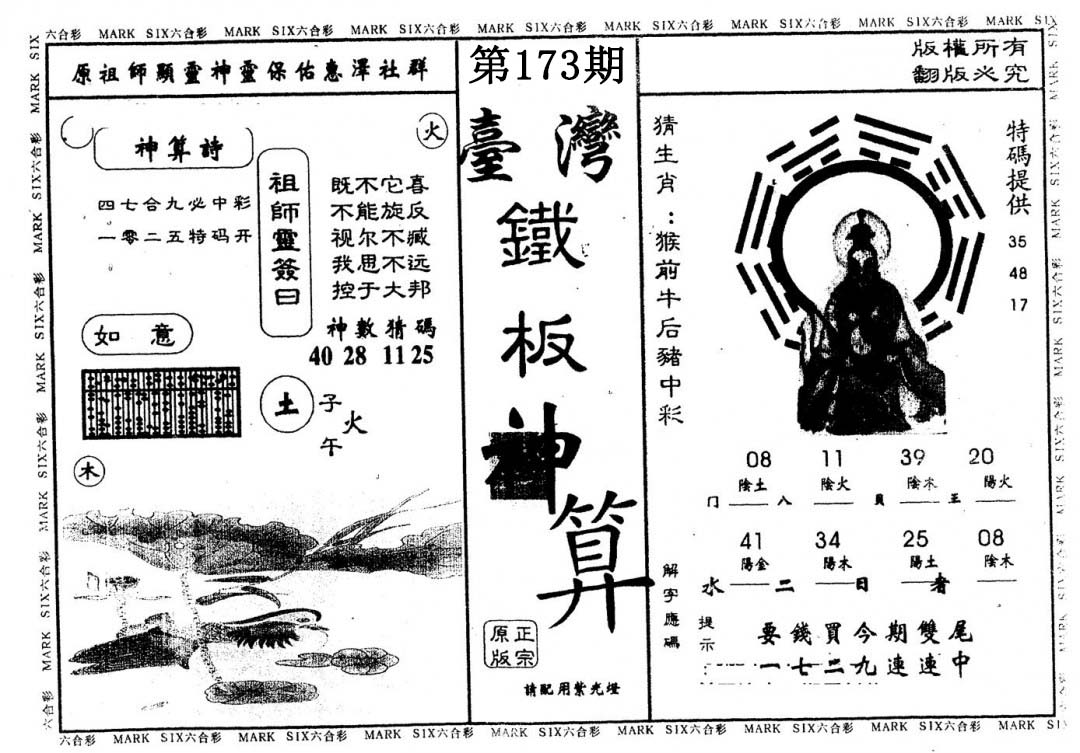 六合彩 MARK SIX六合彩 MARK SIX六合彩 MARK SIX六合彩 MARK SIX六合彩 MARK SIX六合彩 MARK SIX六合彩 MARK SIX六合彩 MARK SIX
原祖師顯靈神靈保佑惠澤社群
火
神算詩
四七合九必中彩
一零二五特码开
祖師靈簽曰
既不它喜
不能旋反
视尔不臧
我思不远
控于大邦
神數猜碼
40 28 11 25
如意
土
子
火
午
木
第173期
臺灣
鐵板神算
正宗
原版
請配用紫光燈
版權所有
翻版必究
猜生肖：猴前牛后豬中彩
特碼提供
35
48
17
08 11 39 20
陰土 陰火 陰木 陽火
门 八 貝 王
41 34 25 08
陽金 陽木 陽土 陰木
水 二 日 者
解字應碼
提示
要錢買今期雙尾
一七二九連連中
六合彩 MARK SIX六合彩 MARK SIX六合彩 MARK SIX六合彩 MARK SIX六合彩 MARK SIX六合彩 MARK SIX六合彩 MARK SIX六合彩 MARK SIX